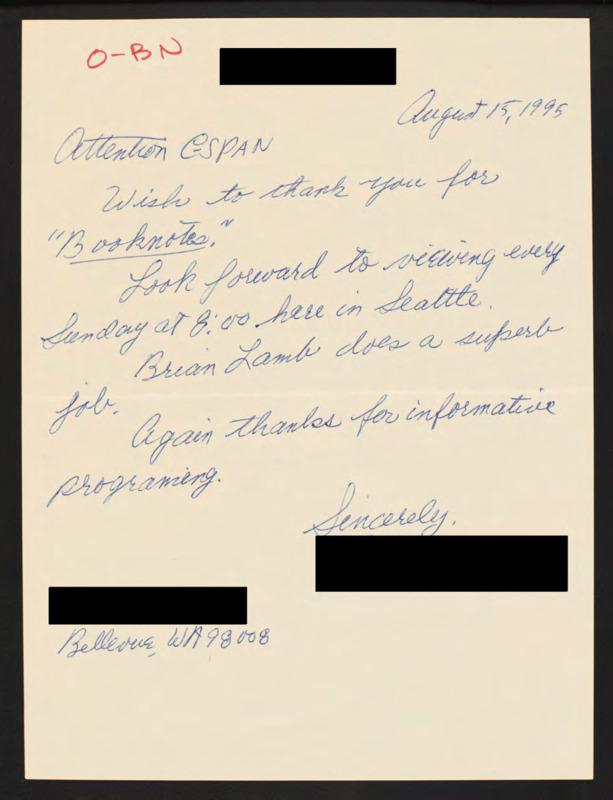 O-BN
August 15, 1995
Attention CSPAN
Wish to thank you for
"Booknotes."
Look forward to viewing every
Sunday at 8:00 here in Seattle.
Brian Lamb does a superb
job.
Again thanks for informative
programing.
Sincerely,
Bellevue, WA 98008